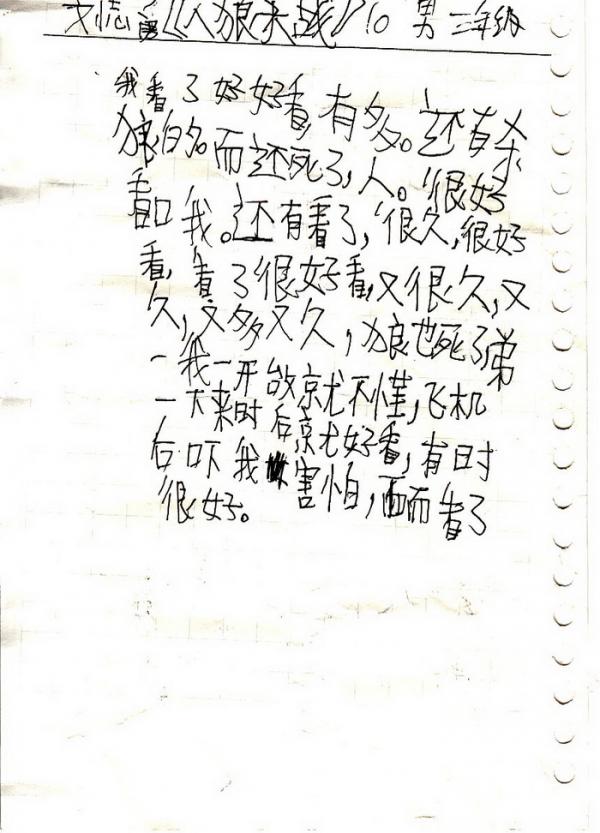 志《人狼大战》10 男 三年级
我看了好好看,有多。还有杀
狼的。而还死了,人。很好
看口我。还有看了,很久,很好
看,看了很好看,又很久,又
久,又多又久,狼也死了弟
一我一开故就不懂,飞机
一大来时后,就好看,有时
后吓我害怕,而看了
很好。